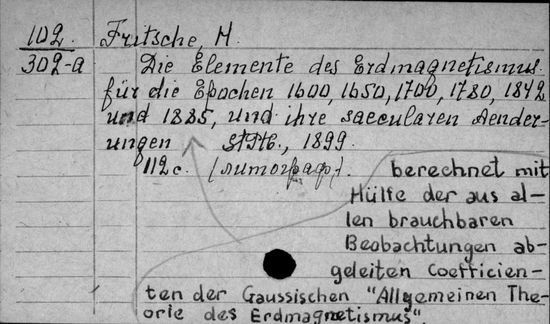 102 Fritsche, H.
302-a Die Elemente des Erdmagnetismus
für die Epochen 1600, 1650, 1700, 1780, 1842
und 1885, und ihre saecularen Aender-
ungen СПб., 1899.
112 с. (литограф.).
berechnet mit
Hülfe der aus al-
len brauchbaren
Beobachtungen ab-
geleiten Coefficien-
ten der Gaussischen "Allgemeinen The-
orie des Erdmagnetismus"